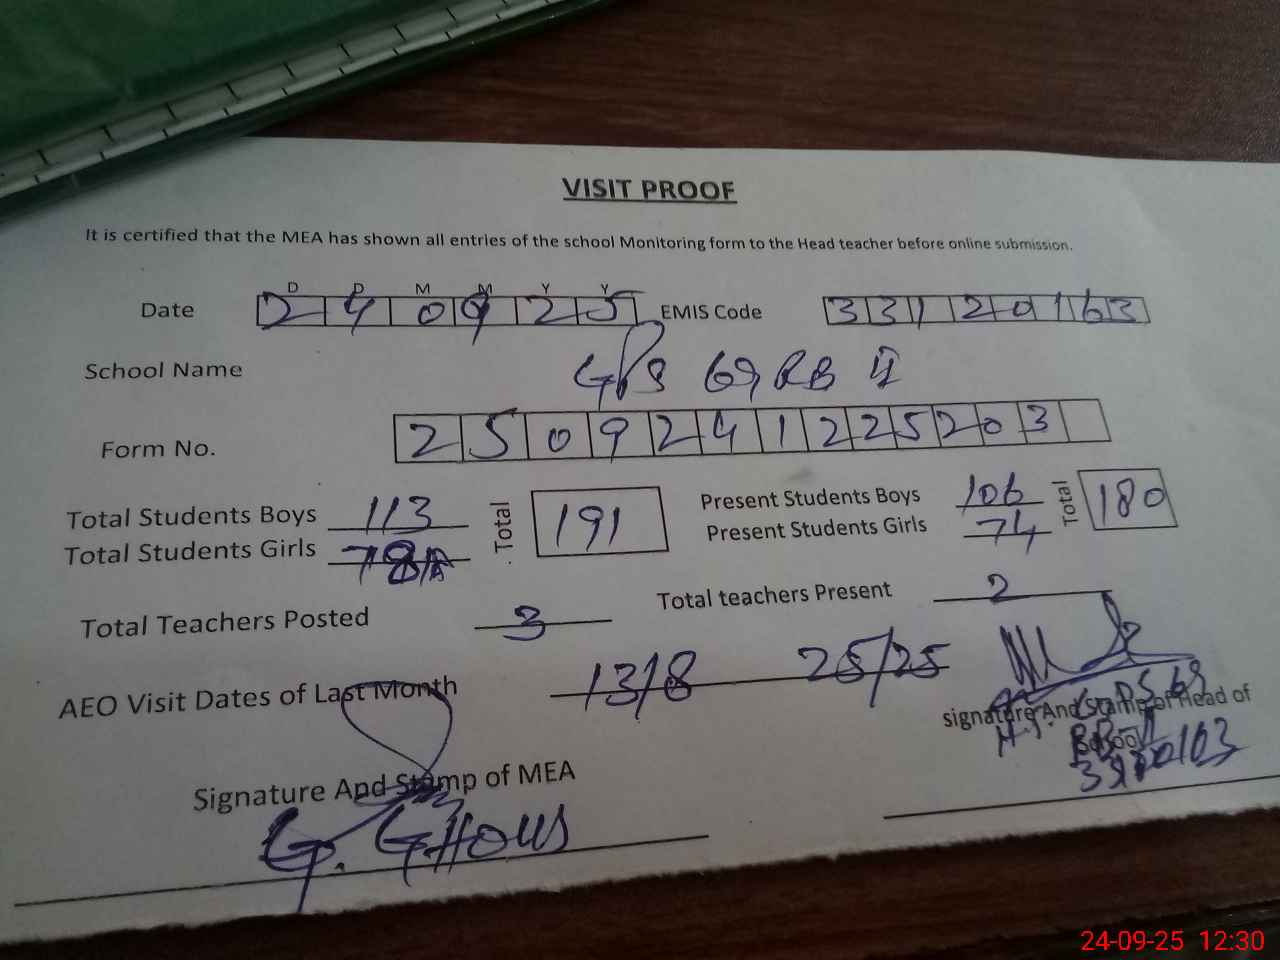 VISIT PROOF
It is certified that the MEA has shown all entries of the school Monitoring form to the Head teacher before online submission.
D D M M Y Y
Date 2 4 0 9 2 5 EMIS Code 3 3 1 2 0 1 6 3
School Name GPS 69 RB II
Form No. 2 5 0 9 2 4 1 2 2 5 2 0 3
Total Students Boys 113 Total 191 Present Students Boys 106 Total 180
Total Students Girls 78 Present Students Girls 74
Total Teachers Posted 3 Total teachers Present 2
AEO Visit Dates of Last Month 13/8 25/25
signature And Stamp of Head of
School
Signature And Stamp of MEA
G. GHOUS
24-09-25 12:30